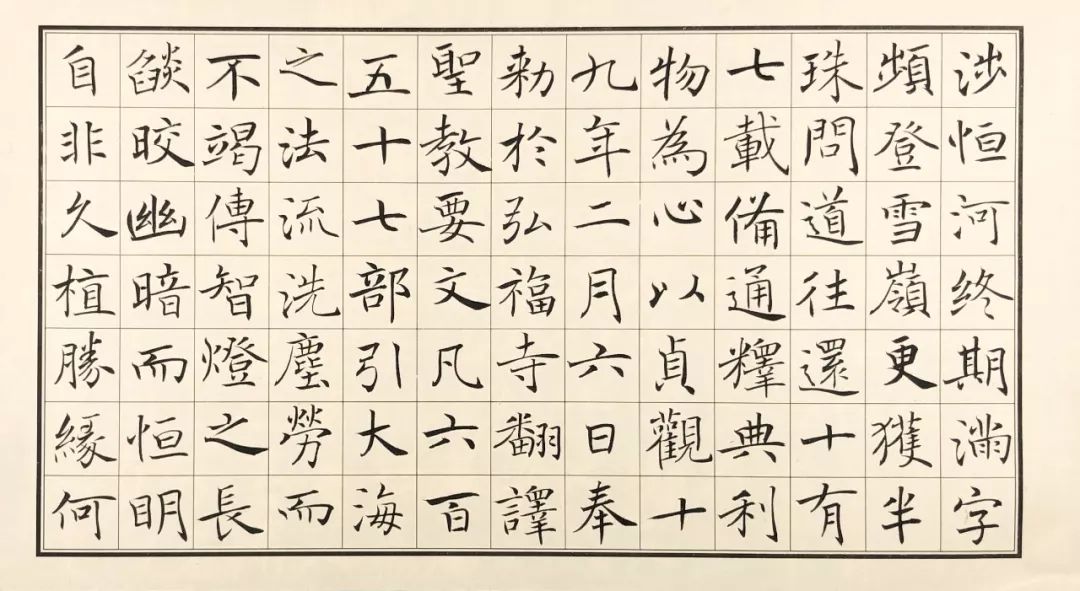 涉恒河終期滿字
頻登雪嶺更獲半
珠問道往還十有
七載備通釋典利
物為心以貞觀十
九年二月六日奉
勑於弘福寺翻譯
聖教要文凡六百
五十七部引大海
之法流洗塵勞而
不竭傳智燈之長
燄晈幽暗而恒明
自非久植勝緣何